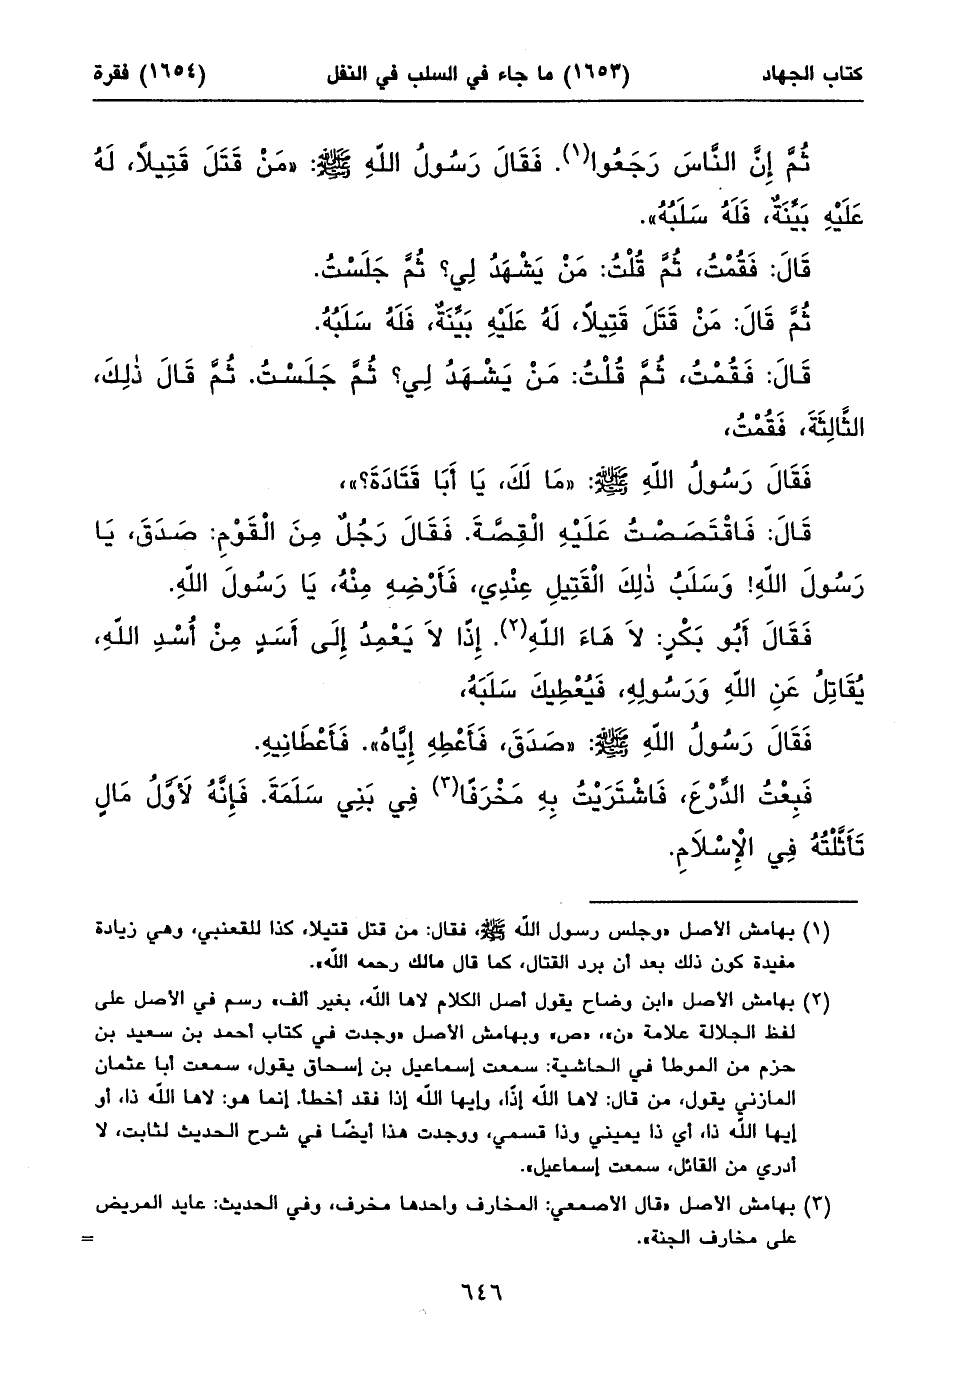 كتاب الجهاد (١٦٥٣) ما جاء في السلب في النفل (١٦٥٤) فقرة
ثُمَّ إِنَّ النَّاسَ رَجَعُوا(١). فَقَالَ رَسُولُ اللّهِ ﷺ: «مَنْ قَتَلَ قَتِيلاً، لَهُ
عَلَيْهِ بَيِّنَةٌ، فَلَهُ سَلَبُهُ».
قَالَ: فَقُمْتُ، ثُمَّ قُلْتُ: مَنْ يَشْهَدُ لِي؟ ثُمَّ جَلَسْتُ.
ثُمَّ قَالَ: مَنْ قَتَلَ قَتِيلاً، لَهُ عَلَيْهِ بَيِّنَةٌ، فَلَهُ سَلَبُهُ.
قَالَ: فَقُمْتُ، ثُمَّ قُلْتُ: مَنْ يَشْهَدُ لِي؟ ثُمَّ جَلَسْتُ. ثُمَّ قَالَ ذٰلِكَ،
الثَّالِثَةَ، فَقُمْتُ،
فَقَالَ رَسُولُ اللّهِ ﷺ: «مَا لَكَ، يَا أَبَا قَتَادَةَ؟»،
قَالَ: فَاقْتَصَصْتُ عَلَيْهِ الْقِصَّةَ. فَقَالَ رَجُلٌ مِنَ الْقَوْمِ: صَدَقَ، يَا
رَسُولَ اللّهِ! وَسَلَبُ ذٰلِكَ الْقَتِيلِ عِنْدِي، فَأَرْضِهِ مِنْهُ، يَا رَسُولَ اللّهِ.
فَقَالَ أَبُو بَكْرٍ: لاَ هَاءَ اللّهِ(٢). إِذًا لاَ يَعْمِدُ إِلَى أَسَدٍ مِنْ أُسْدِ اللّهِ،
يُقَاتِلُ عَنِ اللّهِ وَرَسُولِهِ، فَيُعْطِيكَ سَلَبَهُ،
فَقَالَ رَسُولُ اللّهِ ﷺ: «صَدَقَ، فَأَعْطِهِ إِيَّاهُ». فَأَعْطَانِيهِ.
فَبِعْتُ الدِّرْعَ، فَاشْتَرَيْتُ بِهِ مَخْرَفًا(٣) فِي بَنِي سَلَمَةَ. فَإِنَّهُ لَأَوَّلُ مَالٍ
تَأَثَّلْتُهُ فِي الْإِسْلَامِ.
(١) بهامش الأصل «وجلس رسول اللّه ﷺ، فقال: من قتل قتيلا، كذا للقعنبي، وهي زيادة
مفيدة كون ذلك بعد أن برد القتال، كما قال مالك رحمه اللّه».
(٢) بهامش الأصل «ابن وضاح يقول أصل الكلام لاها اللّه، بغير ألف» رسم في الأصل على
لفظ الجلالة علامة «ن»، «ص» وبهامش الأصل «وجدت في كتاب أحمد بن سعيد بن
حزم من الموطأ في الحاشية: سمعت إسماعيل بن إسحاق يقول، سمعت أبا عثمان
المازني يقول، من قال: لاها اللّه إذًا، وإيها اللّه إذا فقد أخطأ. إنما هو: لاها اللّه ذا، أو
إيها اللّه ذا، أي ذا يميني وذا قسمي، ووجدت هذا أيضًا في شرح الحديث لثابت، لا
أدري من القائل، سمعت إسماعيل».
(٣) بهامش الأصل «قال الأصمعي: المخارف واحدها مخرف، وفي الحديث: عايد المريض
على مخارف الجنة». =
٦٤٦